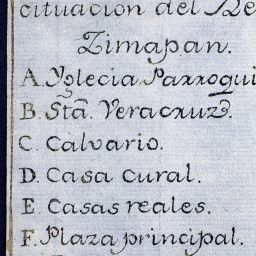 cituacion del Re
Zimapan.
A. Yglecia Parroqui
B. Stã. Veracruz.
C. Calvario.
D. Casa cural.
E. Casas reales.
F. Plaza principal.